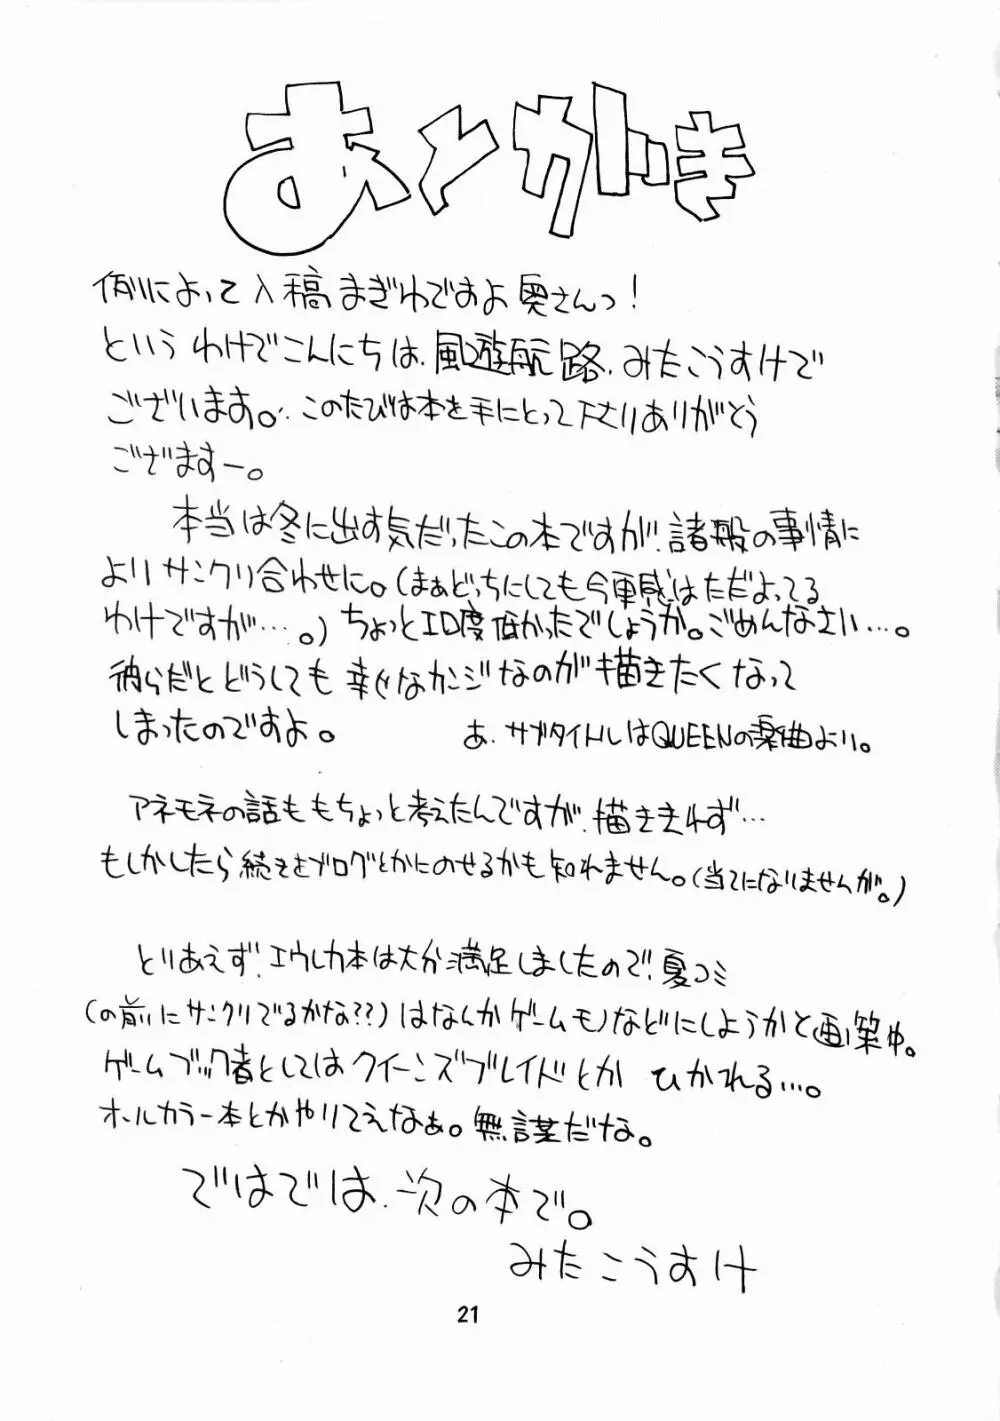 あとがき
例によって入稿まぎわですよ奥さんっ!
というわけでこんにちは、風遊航路、みたこうすけで
ございます。このたびは本を手にとって下さりありがとう
ござますー。
本当は冬に出す気だったこの本ですが、諸般の事情に
よりサンクリ合わせに。(まぁどっちにしても今更感はただよってる
わけですが…。)ちょっとエロ度低かったでしょうか。ごめんなさい…。
彼らだとどうしても幸せなカンジなのが描きたくなって
しまったのですよ。
あ、サブタイトルはQUEENの楽曲より。
アネモネの話ももちょっと考えたんですが、描ききれず…
もしかしたら続きをブログとかにのせるかも知れません。(当てになりませんが。)
とりあえず、エウレカ本は大か満足しましたので、夏コミ
(の前にサンクリでるかな??)はなんかゲームモノなどにしようかと画策中。
ゲームブック者としてはクイーンズブレイドとか ひかれる…。
オールカラー本とかやりてえなぁ。無謀だな。
ではでは、次の本で。
みたこうすけ
21